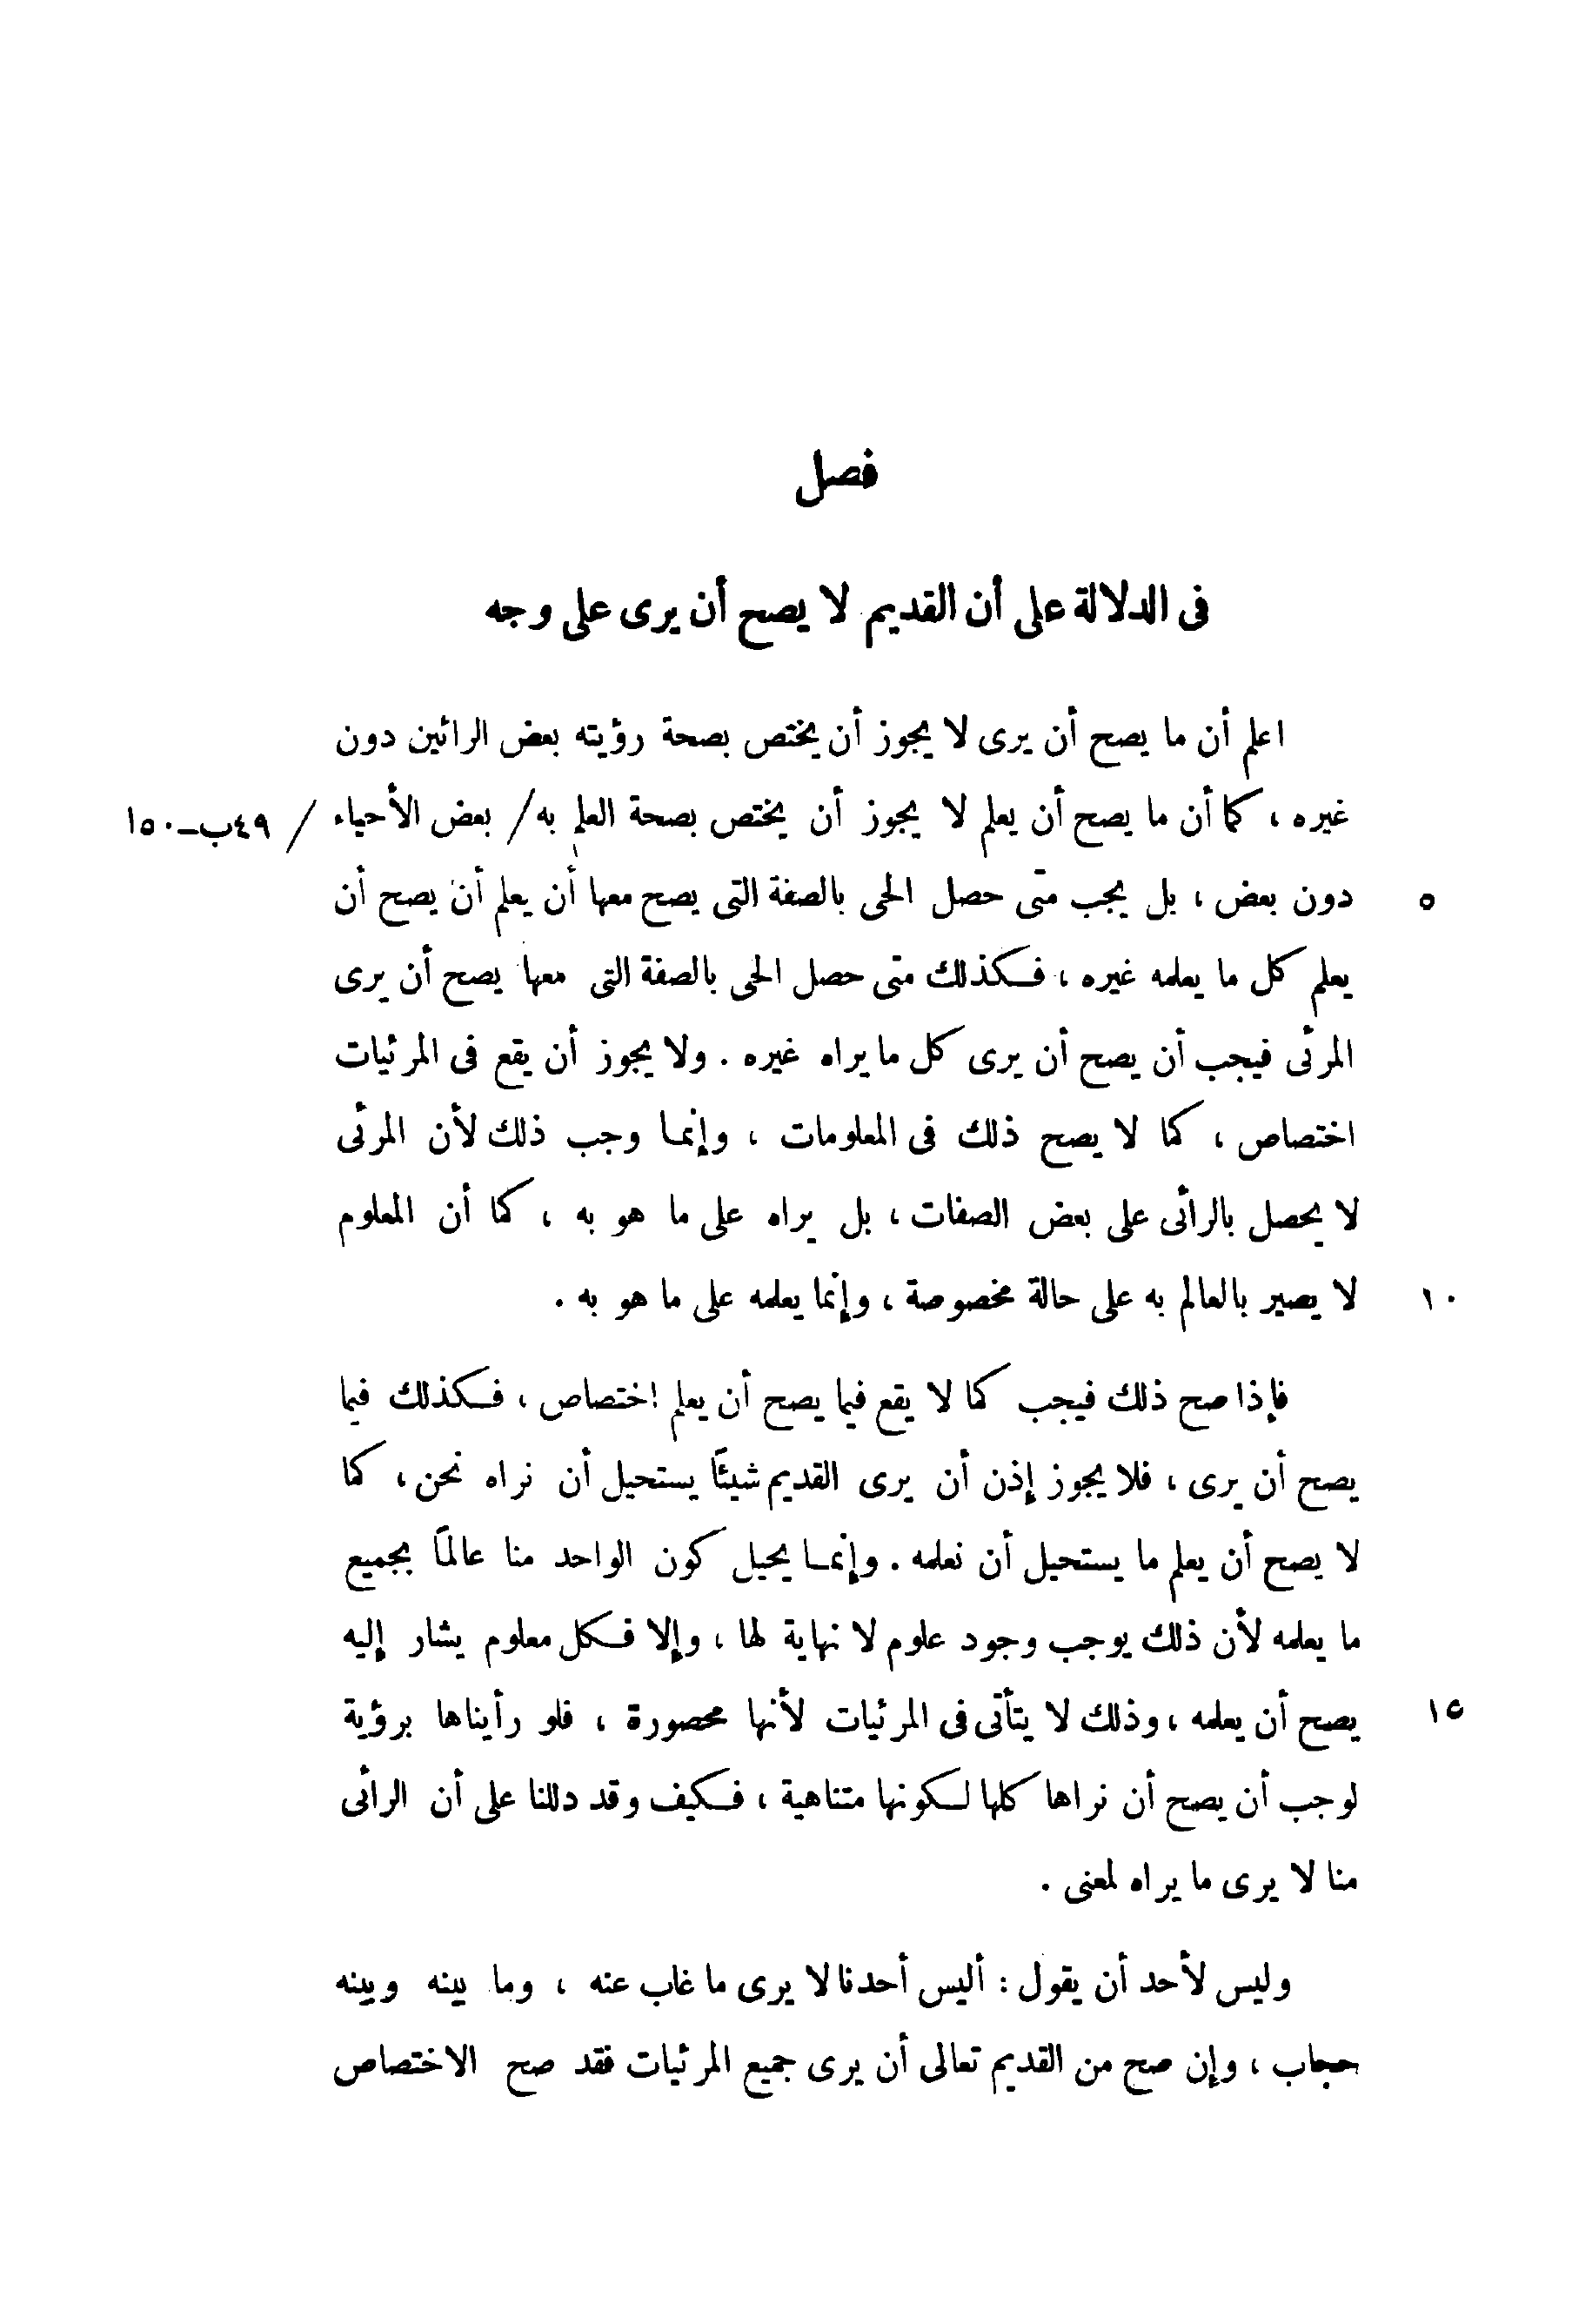 فصل
فى الدلالة على أن القديم لا يصح أن يرى على وجه
اعلم أن ما يصح أن يرى لا يجوز أن يختص بصحة رؤيته بعض الرائين دون
غيره ، كما أن ما يصح أن يعلم لا يجوز أن يختص بصحة العلم به / بعض الأحياء / ٤٩ب-١٥٠
٥ دون بعض ، بل يجب متى حصل الحى بالصفة التى يصح معها أن يعلم أن يصح أن
يعلم كل ما يعلمه غيره ، فكذلك متى حصل الحى بالصفة التى معها يصح أن يرى
المرئى فيجب أن يصح أن يرى كل ما يراه غيره . ولا يجوز أن يقع فى المرئيات
اختصاص ، كما لا يصح ذلك فى المعلومات ، وإنما وجب ذلك لأن المرئى
لا يحصل بالرائى على بعض الصفات ، بل يراه على ما هو به ، كما أن المعلوم
١٠ لا يصير بالعالم به على حالة مخصوصة ، وإنما يعلمه على ما هو به .
فإذا صح ذلك فيجب كما لا يقع فيما يصح أن يعلم اختصاص ، فكذلك فيما
يصح أن يرى ، فلا يجوز إذن أن يرى القديم شيئًا يستحيل أن نراه نحن ، كما
لا يصح أن يعلم ما يستحيل أن نعلمه . وإنما يحيل كون الواحد منا عالمًا بجميع
ما يعلمه لأن ذلك يوجب وجود علوم لا نهاية لها ، وإلا فكل معلوم يشار إليه
١٥ يصح أن يعلمه ، وذلك لا يتأتى فى المرئيات لأنها محصورة ، فلو رأيناها برؤية
لوجب أن يصح أن نراها كلها لكونها متناهية ، فكيف وقد دللنا على أن الرائى
منا لا يرى ما يراه لمعنى .
وليس لأحد أن يقول : أليس أحدنا لا يرى ما غاب عنه ، وما بينه وبينه
حجاب ، وإن صح من القديم تعالى أن يرى جميع المرئيات فقد صح الاختصاص